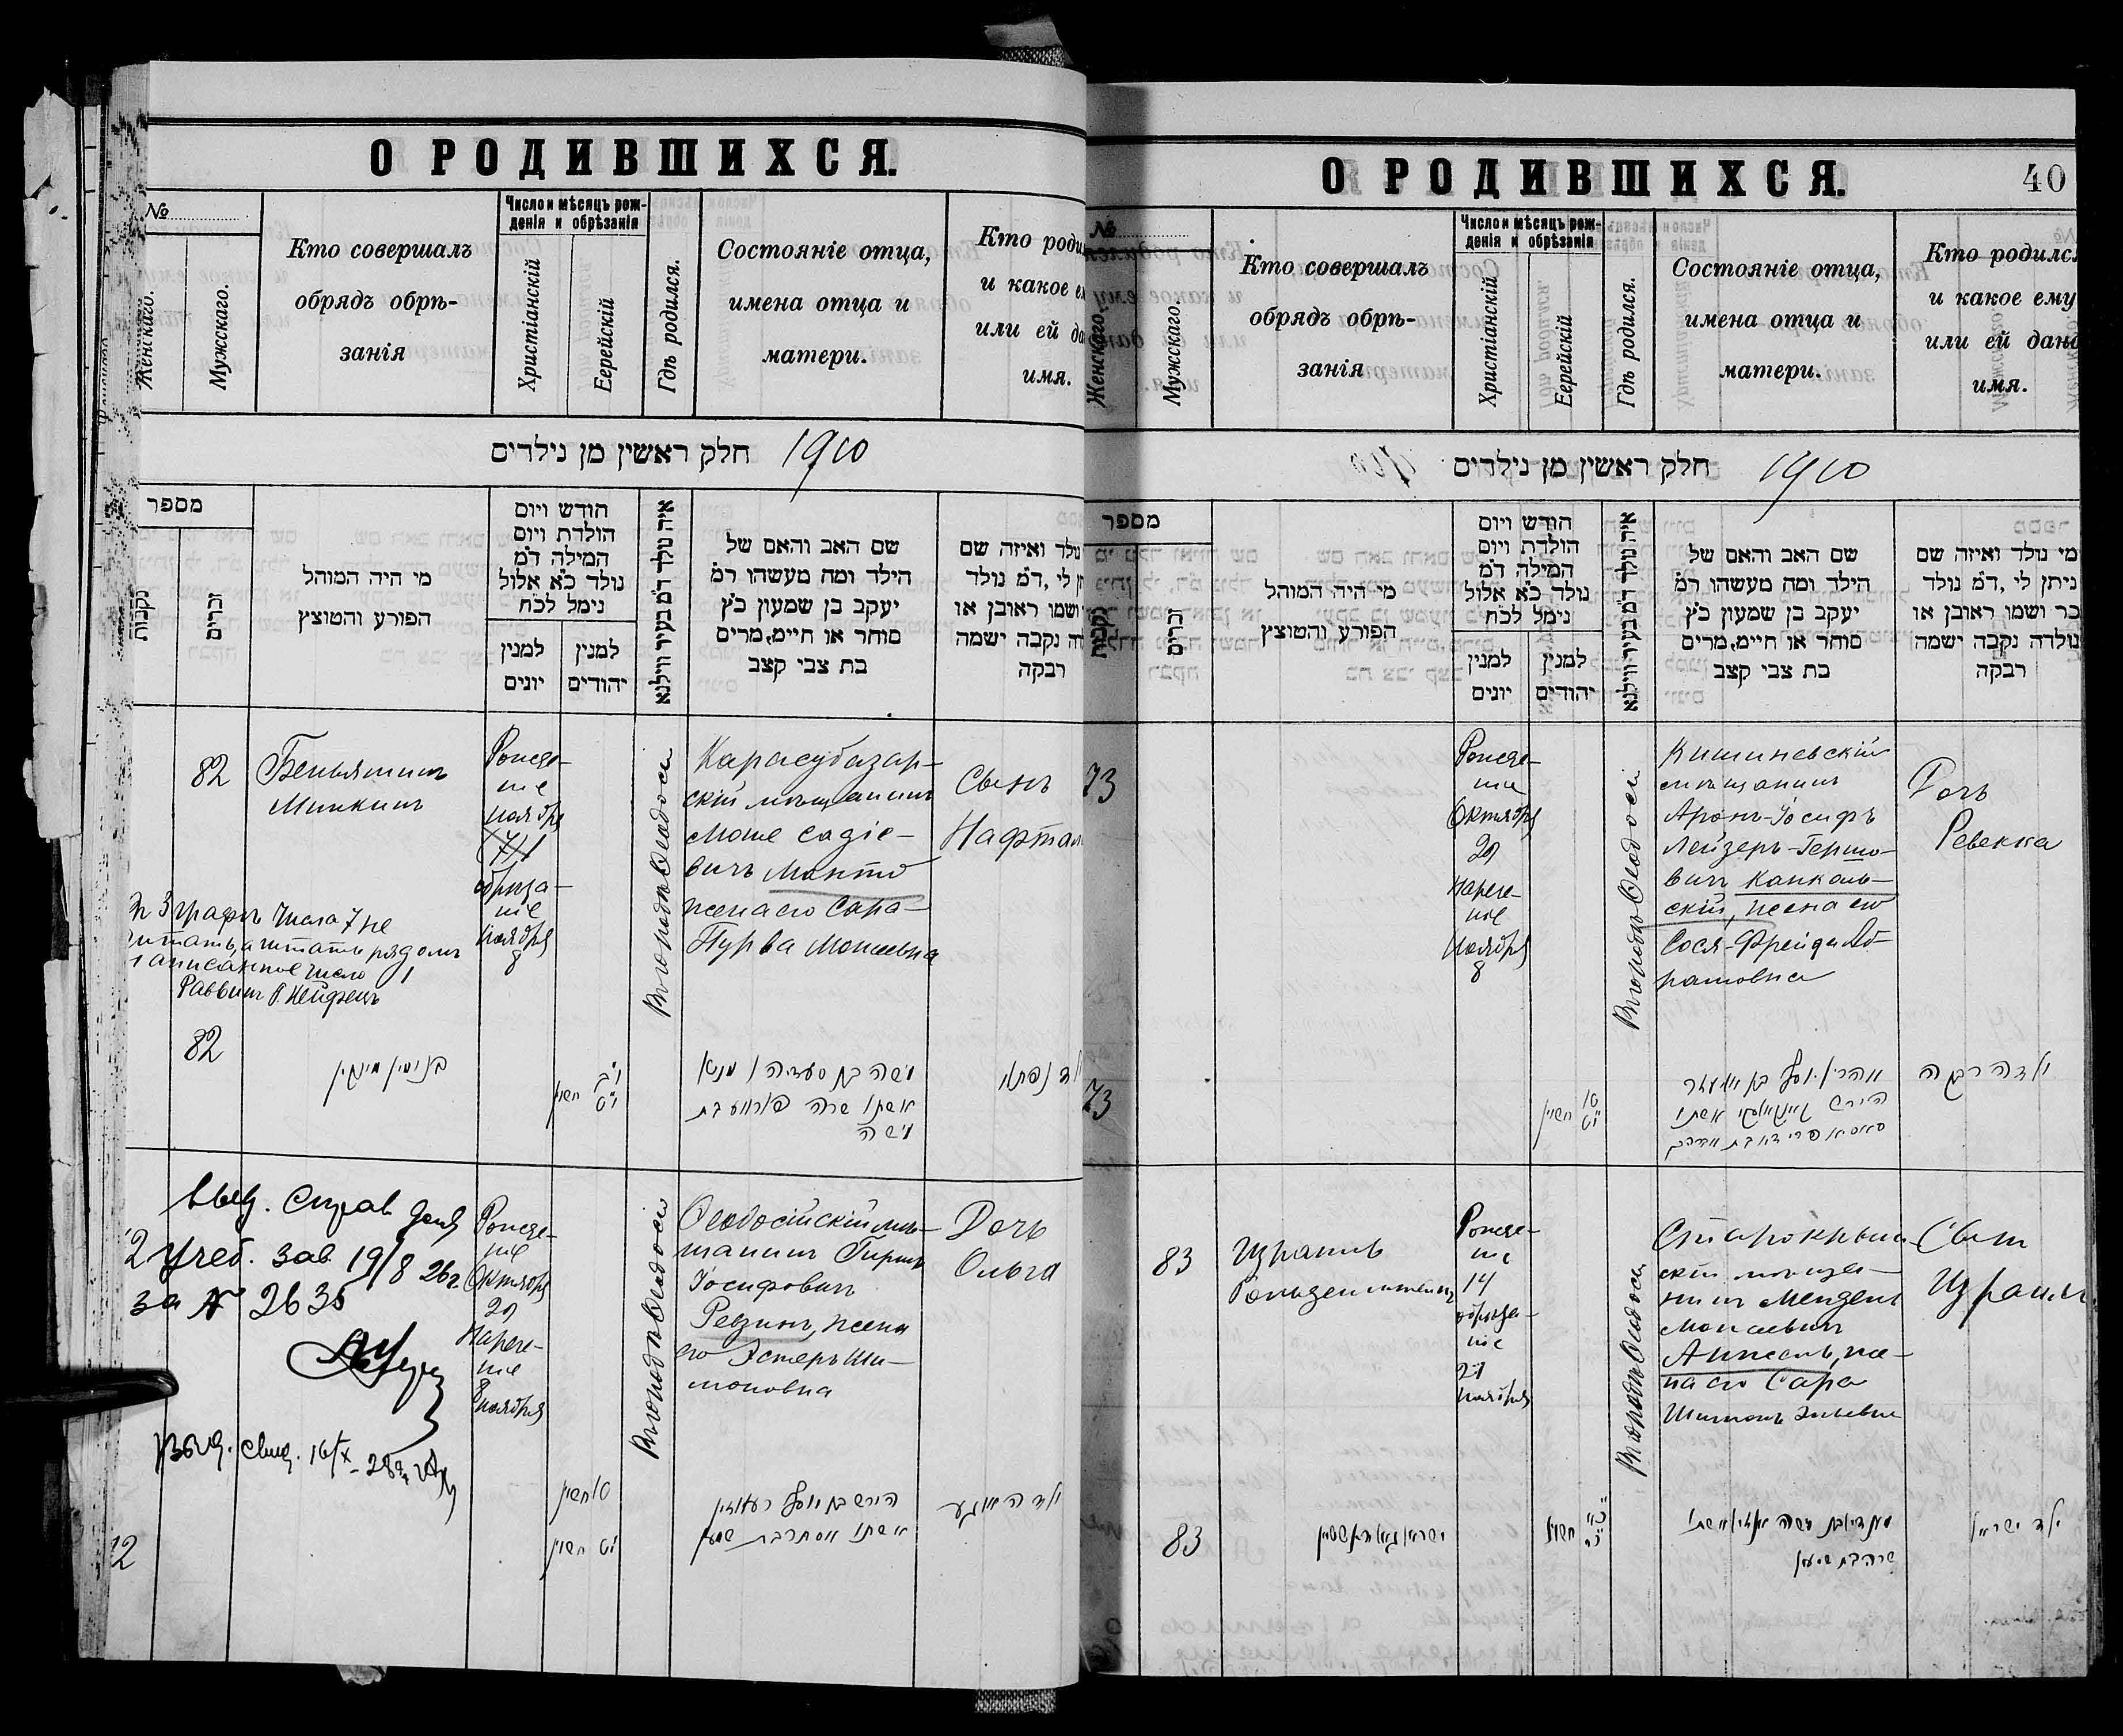 О РОДИВШИХСЯ.
№
Женскаго.
Мужскаго.
Кто совершалъ
обрядъ обрѣ-
занія
Число и мѣсяцъ рож-
денія и обрѣзанія
Христіанскій
Еерейскій
Гдѣ родился.
Состояніе отца,
имена отца и
матери.
Кто роди
и какое е
или ей да
имя.
חלק ראשון מן נילדים 1910
מספר
נקבות
זכרים
מי היה המוהל
הפורע והטוצץ
חודש ויום
הולדת ויום
המילה ד״מ
נולד כ״א אלול
נימל לכ״ח
למנין
יונים
למנין
יהודים
איה נולד ד״מ בעיר ווילנא
שם האב והאם של
הילד ומה מעשהו ר״מ
יעקב בן שמעון כ״ץ
סוחר או חיים, מרים
בת צבי קצב
נולד ואיזה שם
ן לי, ד״מ נולד
ושמו ראובן או
דה נקבה ישמה
רבקה
82
Беньяминъ
Минкинъ
Рожде-
ніе
ноября
1
обрѣза-
ніе
ноября
8
Въ городѣ Ѳеодосіи
Карасубазар-
скій мѣщанинъ
Моше Садіе-
вичъ Манто
жена его Сара-
Пурва Моисеевна
Сынъ
Нафтал
въ 3 графѣ числа 7 не
читать, а читать рядомъ
написанное число 1
Раввинъ
82
בנימין מינקין
י״ב
י״ט חשון
משה בן סעדיה מנטא
אשתו שרה פורווע בת
משה
ילד נפתלי
Выд. Справ. для
учеб. зав. 19/8 26г.
за № 2635
Рожде-
ніе
Октября
29
Нарече-
ніе
8 ноября
Въ городѣ Ѳеодосіи
Ѳеодосійскій мѣ-
щанинъ Гиршъ
Іосифовичъ
Ревзинъ, жена
его Эстеръ Ши-
моновна
Дочь
Ольга
Выд. Свид. 16/X - 28г.
ט׳ חשון
י״ט חשון
הירש בן יוסף רעווזין
אשתו אסתר בת שמעון
ילדה אולגע
О РОДИВШИХСЯ.
40
№
Женскаго.
Мужскаго.
Кто совершалъ
обрядъ обрѣ-
занія
Число и мѣсяцъ рож-
денія и обрѣзанія
Христіанскій
Еерейскій
Гдѣ родился.
Состояніе отца,
имена отца и
матери.
Кто родился
и какое ему
или ей дано
имя.
חלק ראשון מן נילדים 1910
מספר
נקבות
זכרים
מי היה המוהל
הפורע והטוצץ
חודש ויום
הולדת ויום
המילה ד״מ
נולד כ״א אלול
נימל לכ״ח
למנין
יונים
למנין
יהודים
איה נולד ד״מ בעיר ווילנא
שם האב והאם של
הילד ומה מעשהו ר״מ
יעקב בן שמעון כ״ץ
סוחר או חיים, מרים
בת צבי קצב
מי נולד ואיזה שם
ניתן לי, ד״מ נולד
כר ושמו ראובן או
נולדה נקבה ישמה
רבקה
73
Рожде-
ніе
Октября
29
Нарече-
ніе
Ноября
8
Въ городѣ Ѳеодосіи
Кишиневскій
мѣщанинъ
Аронъ-Іосифъ
Лейзеръ-Гершо-
вичъ Канколь-
скій, жена его
Сося-Фрейда Аб-
рамовна
Дочь
Ревекка
73
ט׳
י״ט חשון
אהרון יוסף בן אליעזר
הירש אשתו
סאסיא פריידא בת אברהם
ילדה רבקה
83
Израиль
Гольденштейнъ
Рожде-
ніе
14
обрѣза-
ніе
21
ноября
Въ городѣ Ѳеодосіи
Старокрым-
скій мѣща-
нинъ Мендель
Моисеевичъ
жена его Сара
Сынъ
Израиль
83
ישראל גאלדענשטיין
חשון
אשתו
שרה בת שמעון
ילד ישראל